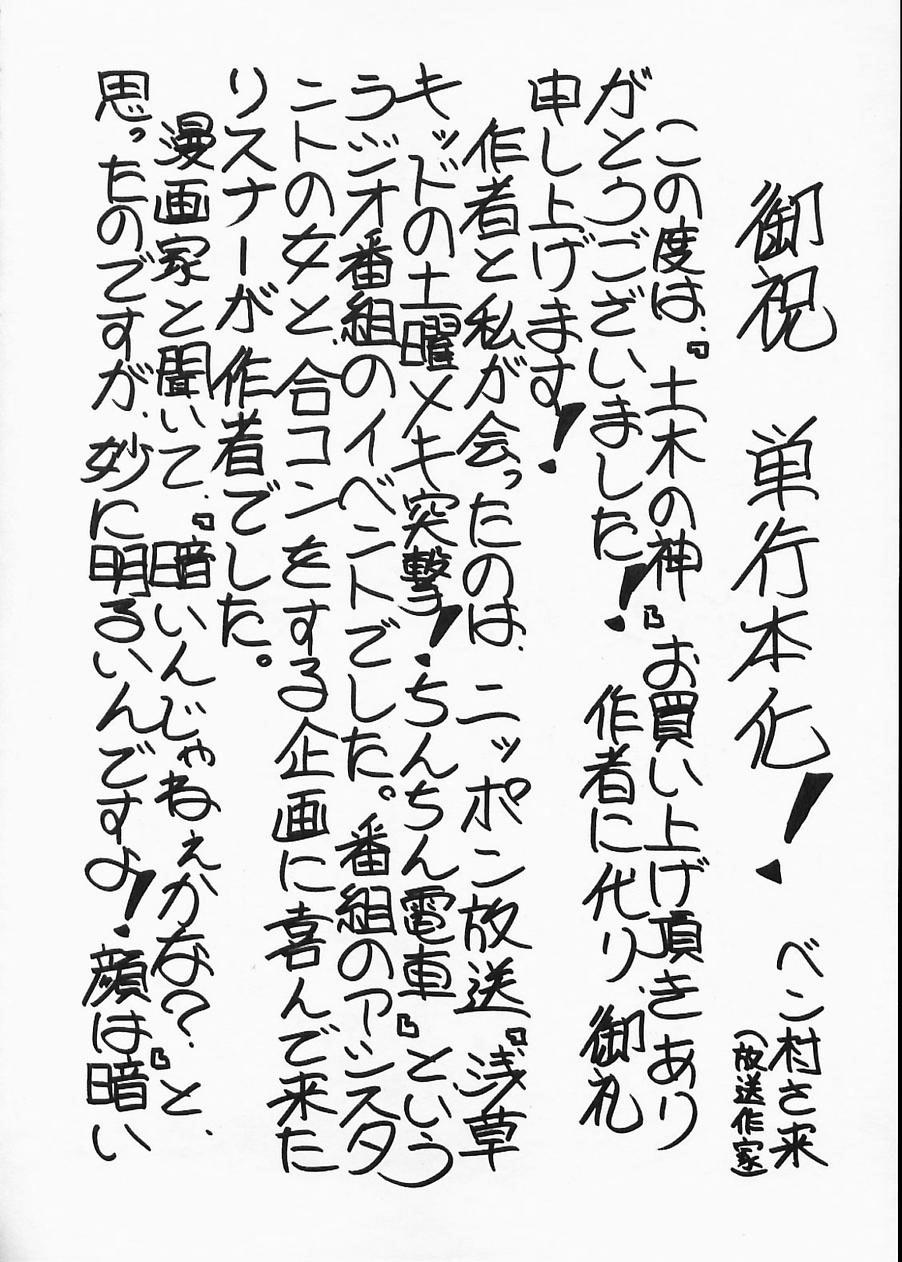 御祝 単行本化！
ベン村さ来
（放送作家）
この度は、『土木の神』お買い上げ頂きあり
がとうございました！作者に代り、御礼
申し上げます！
作者と私が会ったのは、ニッポン放送『浅草
キッドの土曜メキメキ突撃！ちんちん電車』という
ラジオ番組のイベントでした。番組のアシスタ
ントの女と、合コンをする企画に喜んで来た
リスナーが作者でした。
漫画家と聞いて、『暗いんじゃねぇかな？』と、
思ったのですが、妙に明るいんですよ！顔は暗い